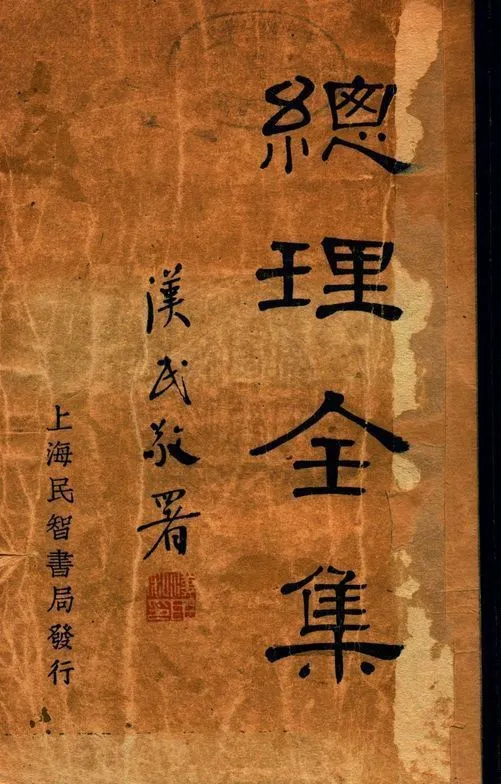 總理全集
漢民敬署
上海民智書局發行